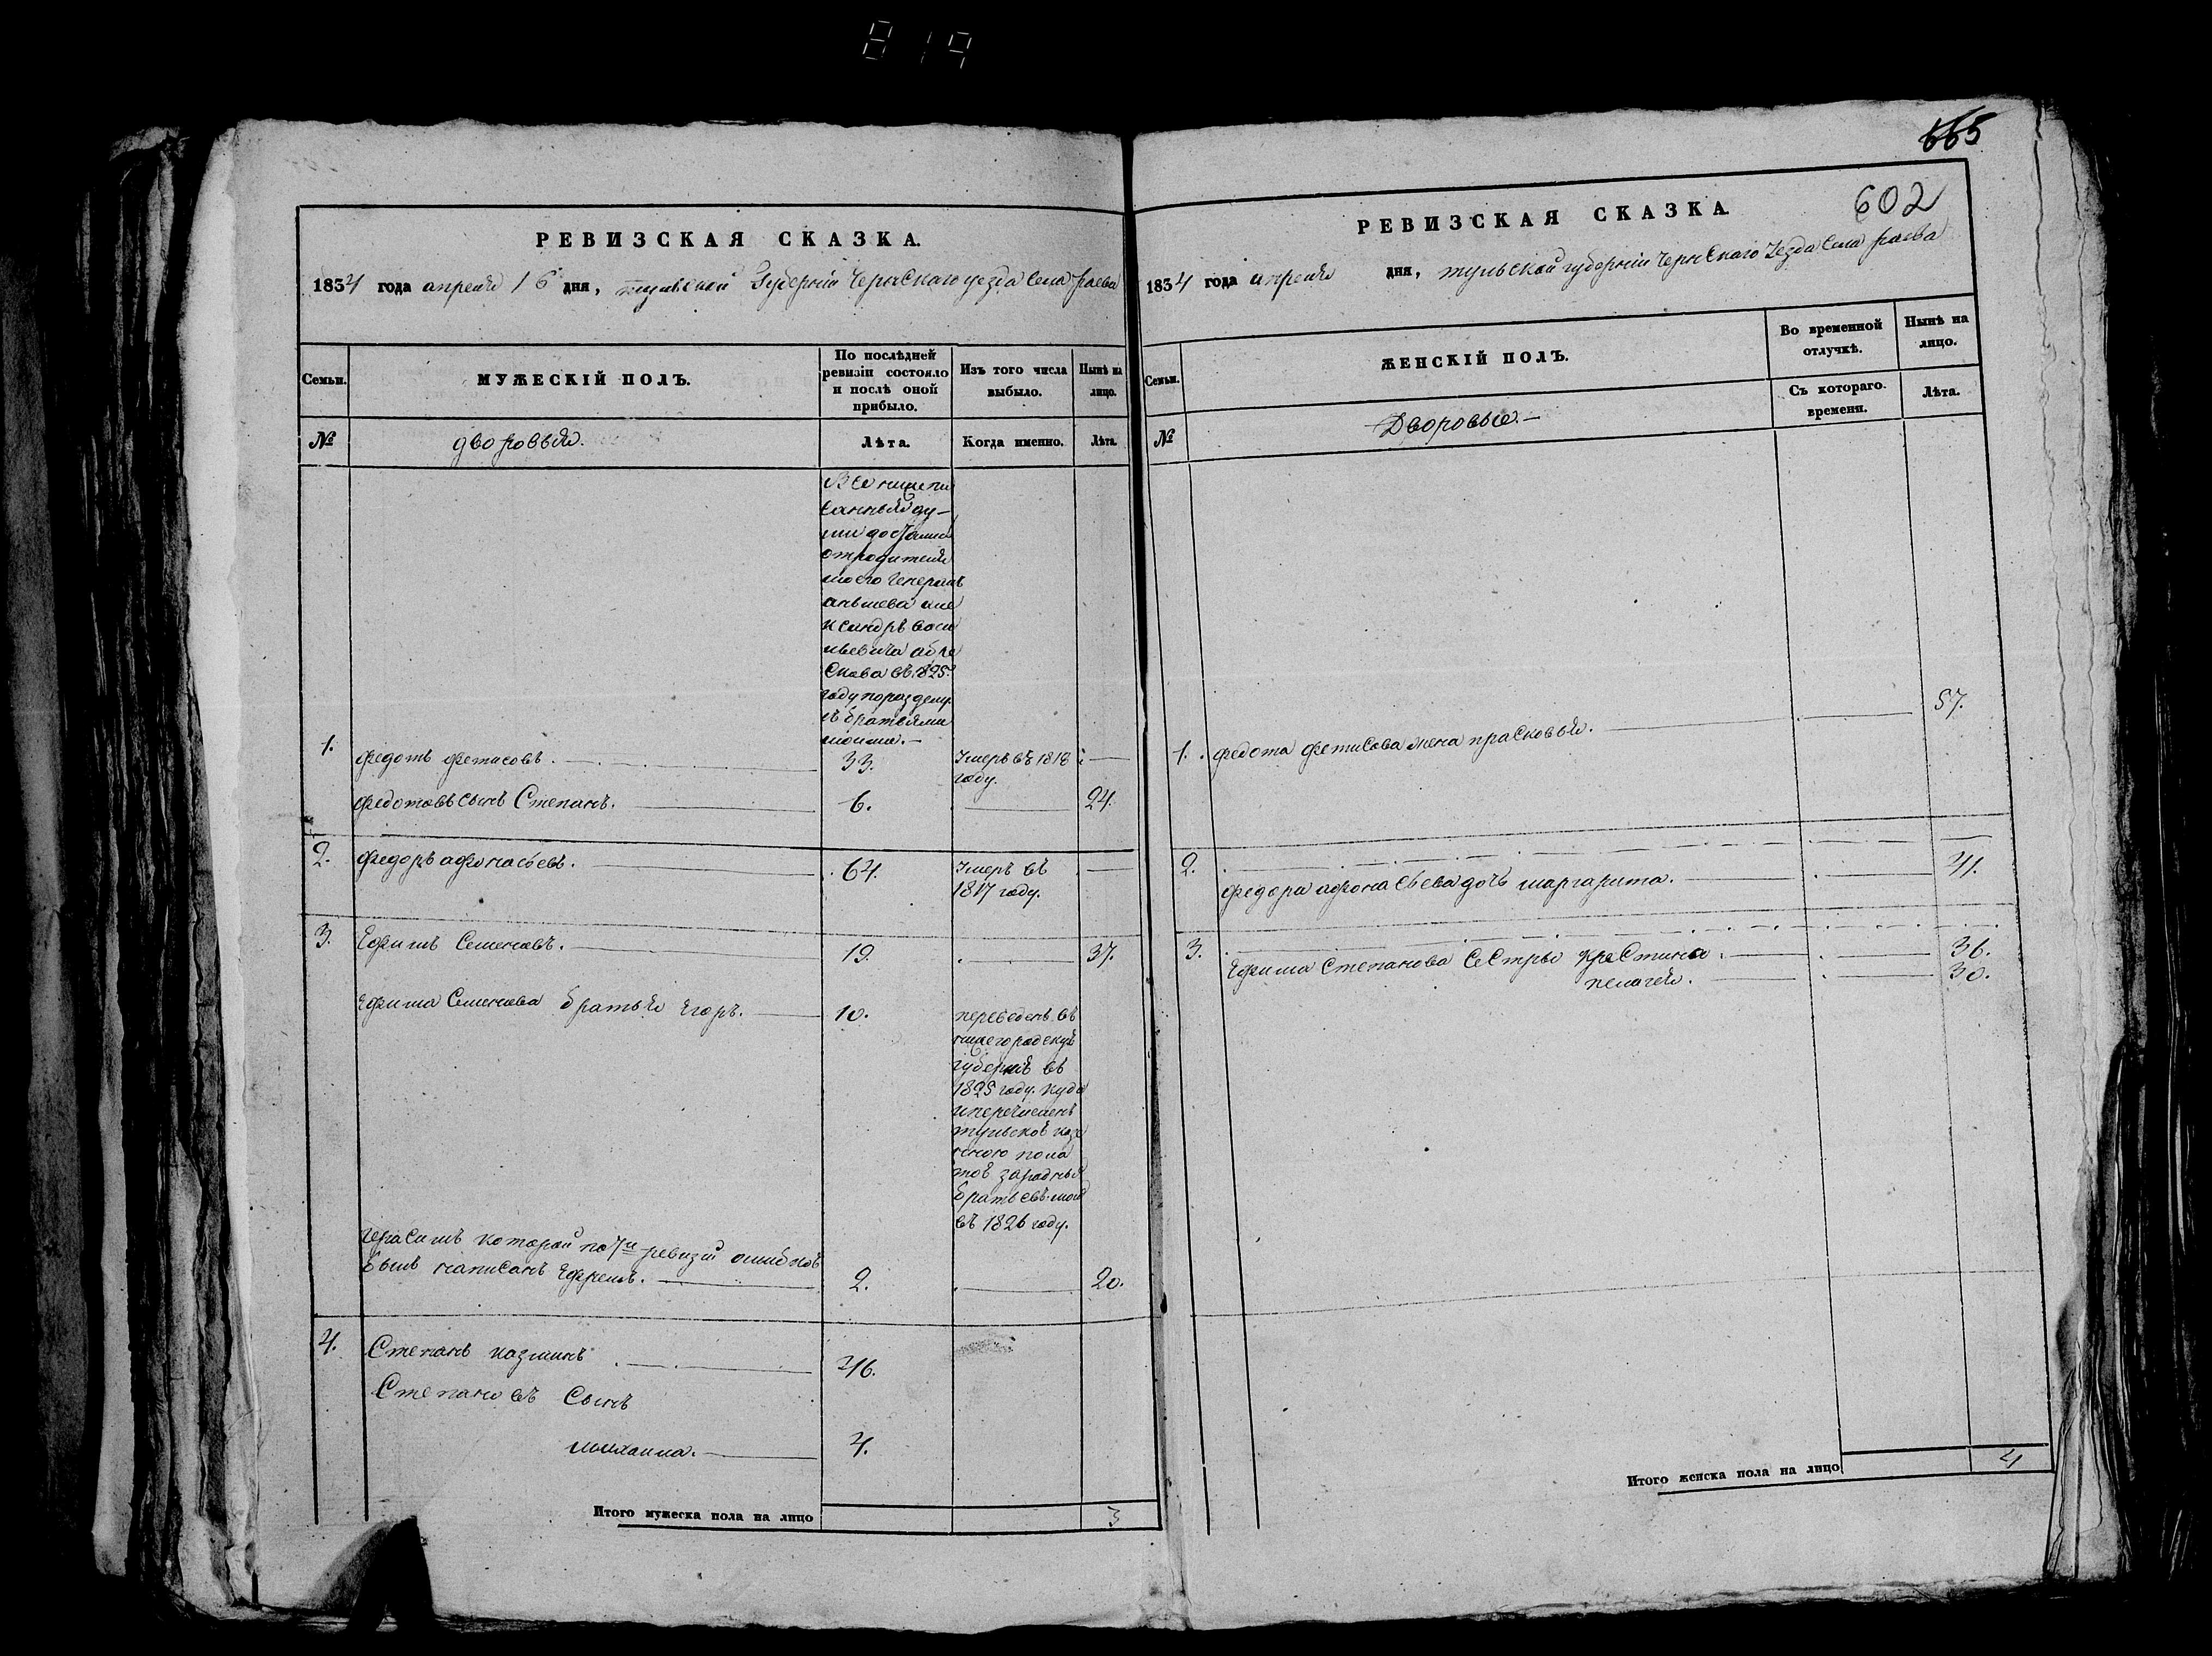 819
РЕВИЗСКАЯ СКАЗКА.
1834 года апреля 16 дня, тульской Губерніи Чернскаго уезда Села раева
Семьи.
МУЖЕСКІЙ ПОЛЪ.
По послѣдней ревизіи состояло и послѣ оной прибыло.
Изъ того числа выбыло.
Нынѣ на лицо.
№
дворовыя.
Лѣта.
Когда именно.
Лѣта.
Все нижепи
санныя ду–
ши достались
отродителя
моего Генералъ
александръ васи
льевича
въ 1825.
году поразделу
съ братьями
моими.–
1.
федотъ фетисовъ.
33.
Умеръ въ 1818
году.
федотовъ сынъ Степанъ.
6.
24.
2.
федоръ афонасьевъ.
64.
Умеръ въ
1817 году.
3.
Ефимъ Семеновъ.
19.
37.
Ефима Семенова братья Егоръ.
10.
переведенъ въ
нижегородскую
губернію въ
1825 году. куда
и перечисленъ
тульскоѣ казе
нною пола
тоѣ
братьевъ мои
въ 1826 году.
Герасимъ которой по 7й ревизіи ошибкоѣ
былъ написанъ Ефремъ.
2.
20.
4.
Степанъ казминъ
46.
Степановъ Сынъ
михаила.
4.
Итого мужеска пола на лицо
3
665
602
РЕВИЗСКАЯ СКАЗКА.
1834 года апреля дня, тульской губерніи Чернскаго Уезда Села раева
Семьи.
ЖЕНСКІЙ ПОЛЪ.
Во временной отлучкѣ.
Нынѣ на лицо.
№
Дворовые.–
Съ котораго времени.
Лѣта.
1.
федота фетисова жена прасковья.
57.
2.
федора афонасьева дочь маргарита.
41.
3.
Ефима Степанова Сестры Крестина
36.
пелагея.
30.
Итого женска пола на лицо
4